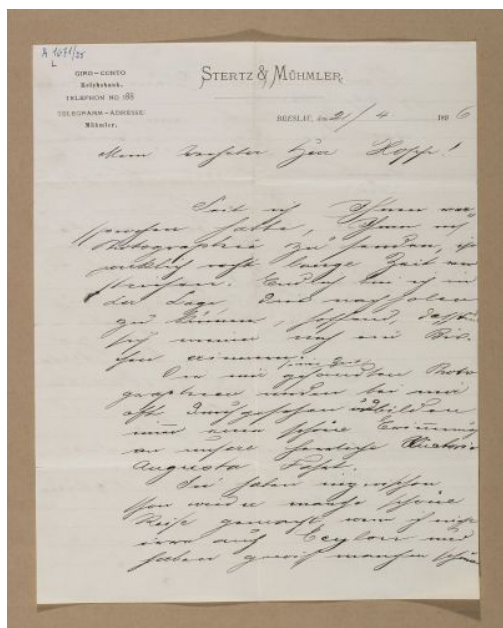 A 1071/25
L
GIRO-CONTO
Reichsbank.
TELEPHON NO. 188
TELEGRAMM-ADRESSE:
Mühmler.
STERTZ & MÜHMLER.
BRESLAU, den 21/4 1896
Mein verehrter Herr !
Seit ich Ihnen ver-
sprochen hatte, Ihnen
Photographie zu senden, ist
wirklich recht lange Zeit ver-
strichen. Endlich bin ich in
der Lage, dies nachholen
zu können, hoffend, daß Sie
sich meiner noch ein Bis-
chen erinnern.
Die mir s. Zeit gesandten Photo
graphien werden bei mir
oft durchgesehen u. bilden
immer eine schöne Erinnerung
an unsere herrliche Victoria
Augusta Fahrt.
Sie haben inzwischen
schon wieder manche schöne
Reise gemacht, wenn ich nicht
irre auch Ceylon und
haben gewiß manchen schönen